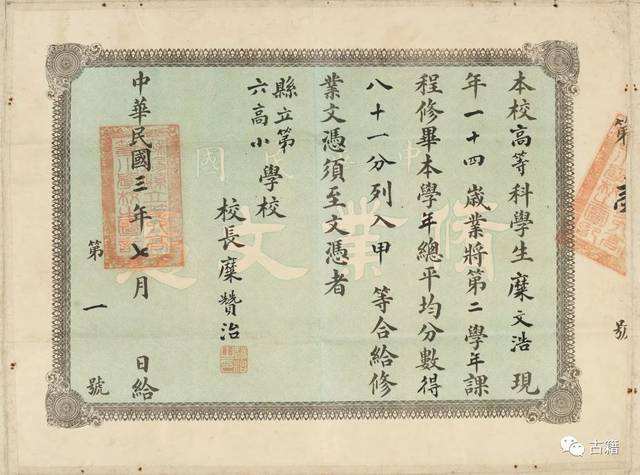 第 號
本校高等科學生糜文浩現
年一十四歲業將第二學年課
程修畢本學年總平均分數得
八十一分列入甲 等合給修
業文憑須至文憑者
縣立第
六高小
學校
校長糜贊治
中華民國三年七月 日給
第一號
脩業文憑
古籍